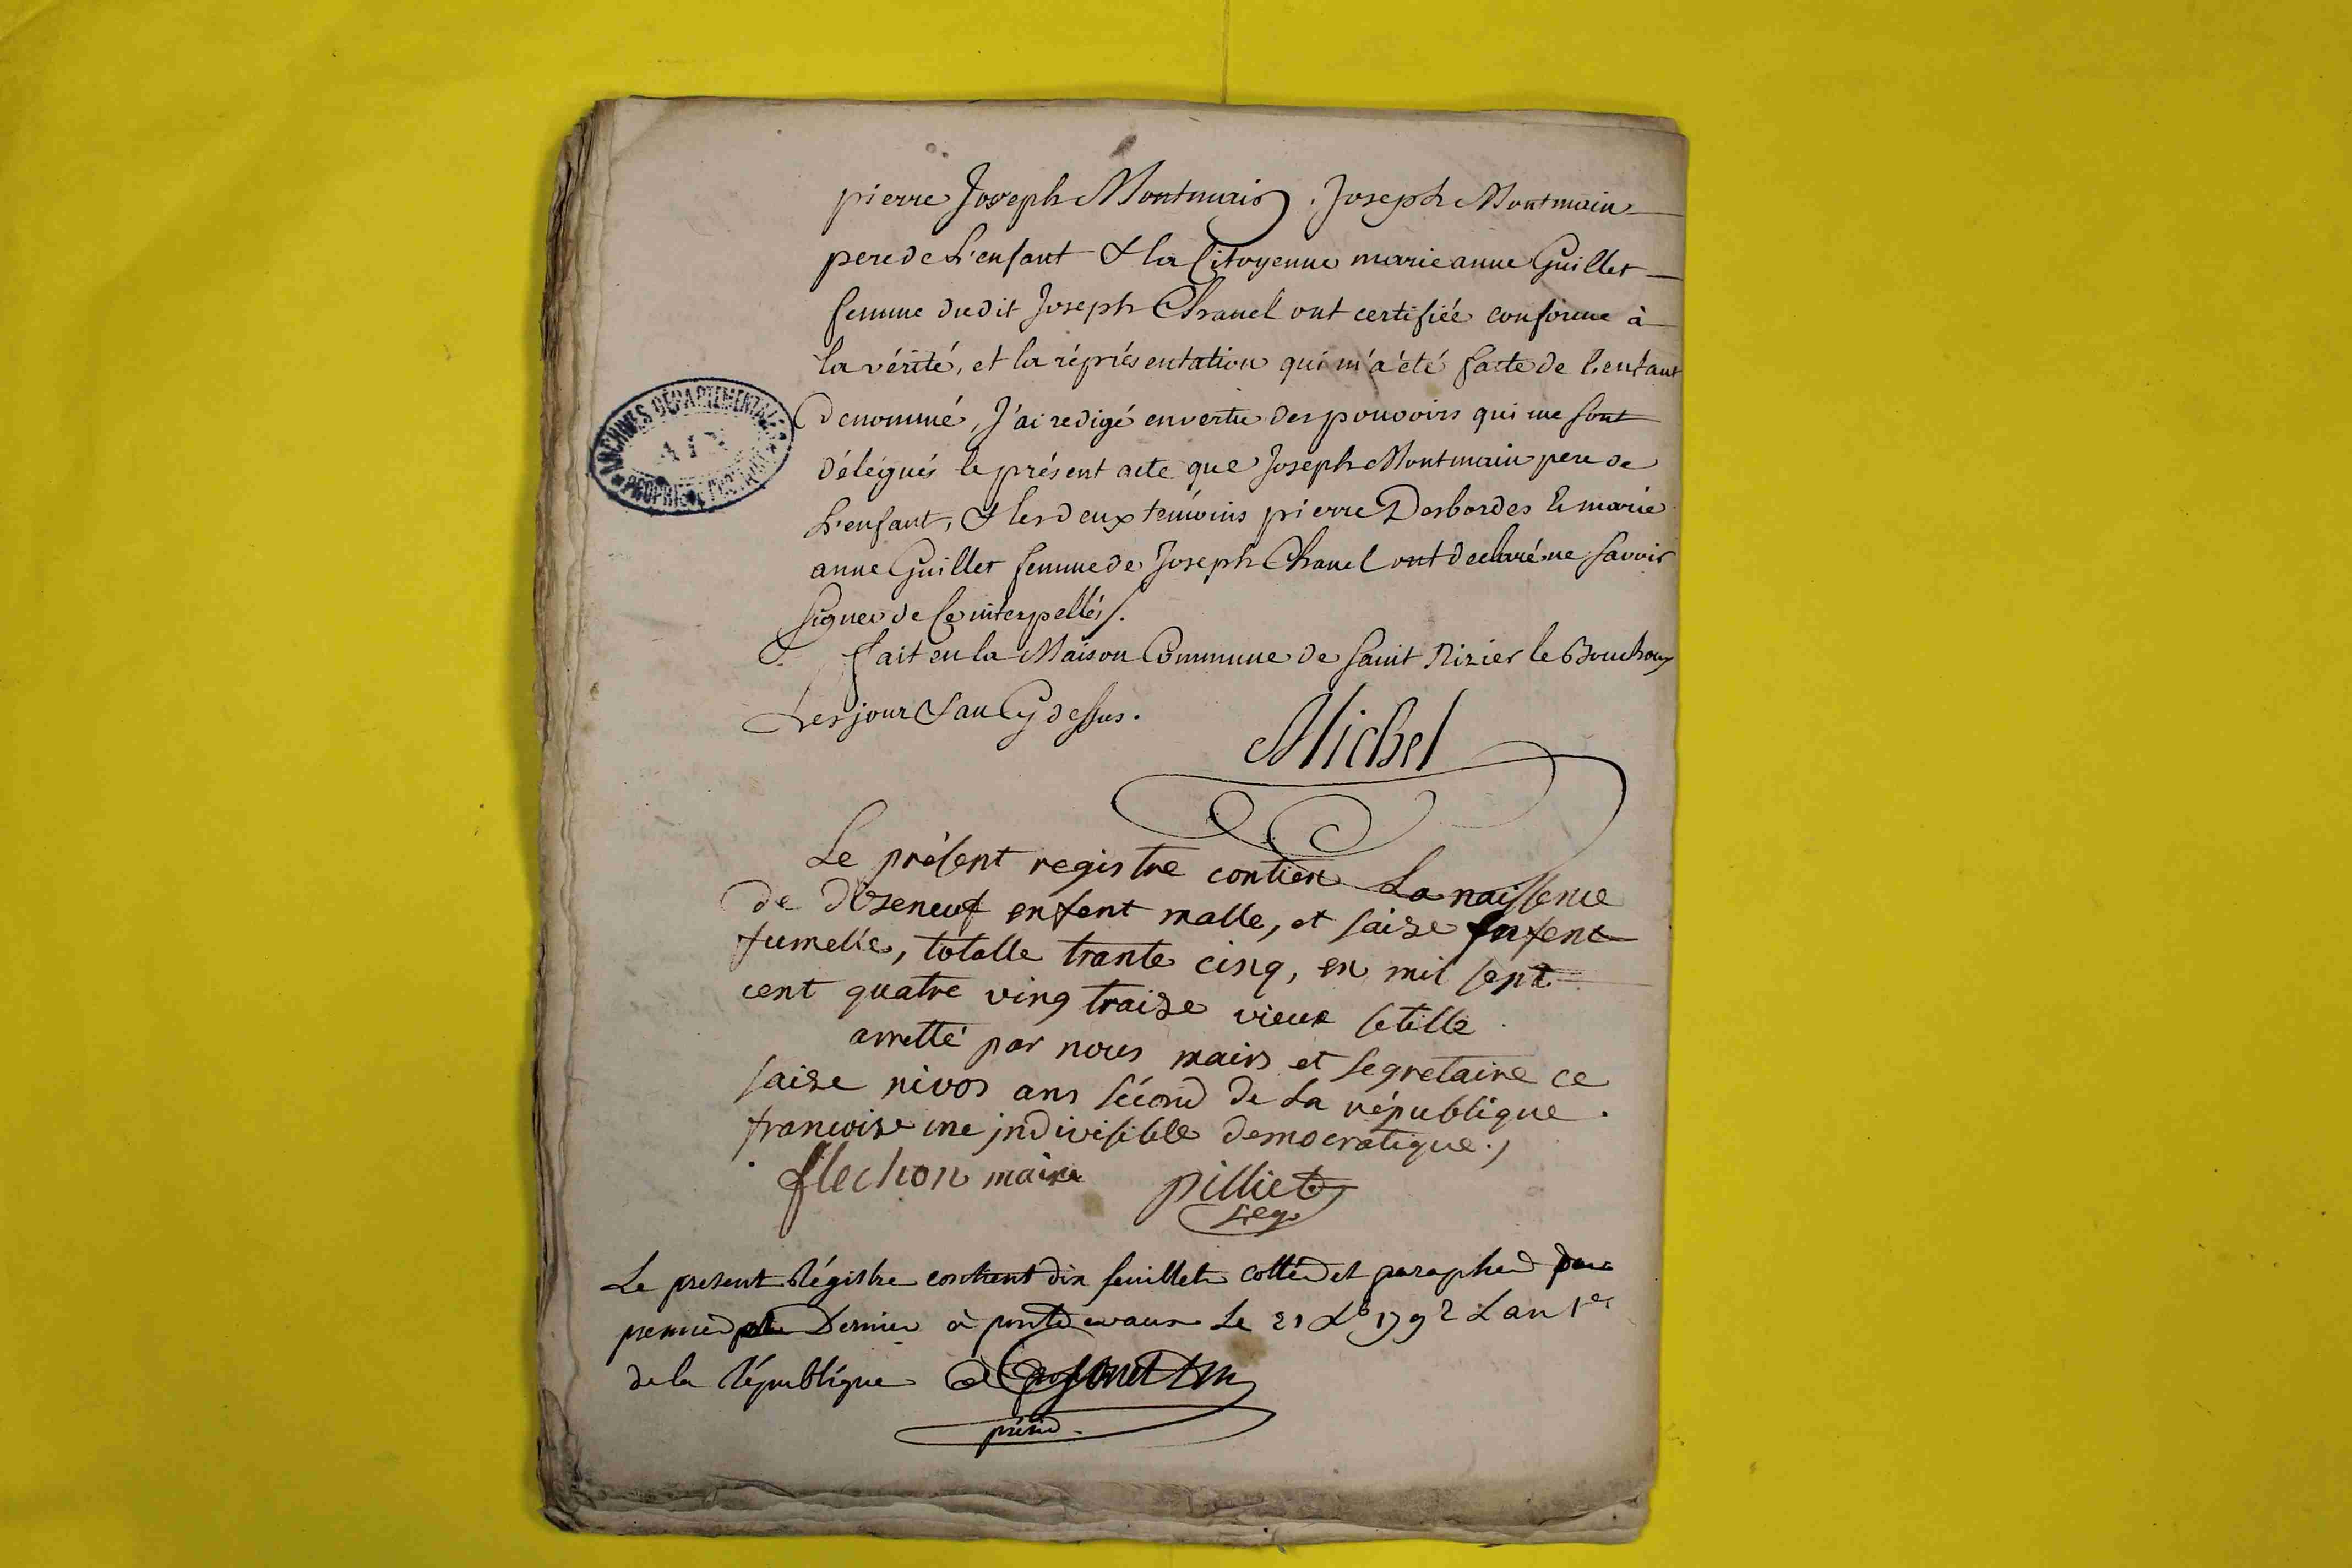 pierre Joseph Montmain. Joseph Montmain
pere de L'enfant & la Citoyenne marie anne Guillet
femme dudit Joseph Chanel ont certifiée conforme à
la vérité, et la réprésentation qui m'a été faite de l'enfant
denommé, J'ai redigé en vertu des pouvoirs qui me sont
délégués le présent acte que Joseph Montmain pere de
L'enfant, & les deux témoins pierre Desbordes & marie
anne Guillet femme de Joseph Chanel ont declaré ne savoir
signer de Ce interpellés/.
fait en la Maison Commune de saint Nizier le Bouchoux
Les jour & an Cy dessus.
Michel
ARCHIVES DÉPARTEMENTALES
AIN
PROPRIÉTÉ PUBLIQUE
Le présent registre contien La naissence
de dizeneuf enfent malle, et saize enfent
fumelle, totalle trante cinq, en mil sept
cent quatre ving traize vieux stille
arretté par nous maire et segretaire ce
saize nivos ans second de La république
francoise une jndivisible democratique.,
flechon maire pilliet
seg
Le present Régistre contient dix feuillets cottés et paraphés par
premier et Dernier à pontdevaux Le 21 Xb 1792 L'an 1er
de la République
présid.